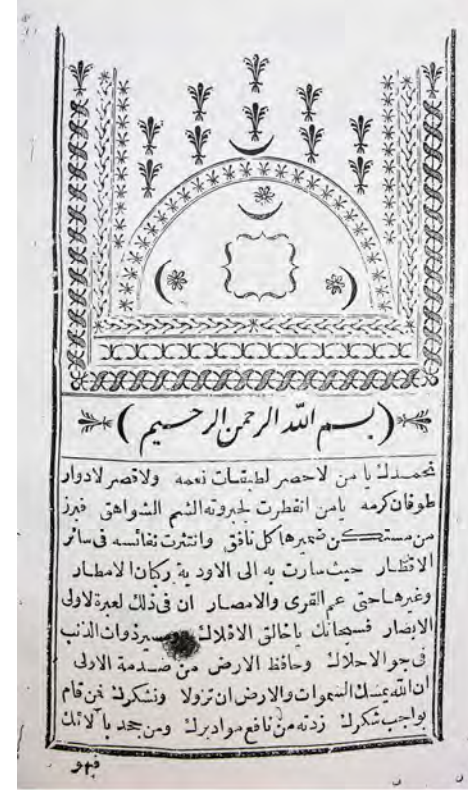 (بسم الله الرحمن الرحيم)
نحمدك يا من لا حصر لطبقات نعمه ولا قصر لادوار
طوفان كرمه يا من انفطرت لجبروته الشم الشواهق فبرز
من مستكن ضميرها كل نافق وانتثرت نفائسه فى سائر
الاقطار حيث سارت به الى الاودية ركبان الامطار
وغيرها حتى عم القرى والامصار ان فى ذلك لعبرة لاولى
الابصار فسبحانك يا خالق الافلاك ومسير ذوات الذنب
فى جو الاحلاك وحافظ الارض من صدمة الاولى
ان الله يمسك السموات والارض ان تزولا ونشكرك فمن قام
بواجب شكرك زدته من نافع موادبرك ومن جحد بآلائك
فهو